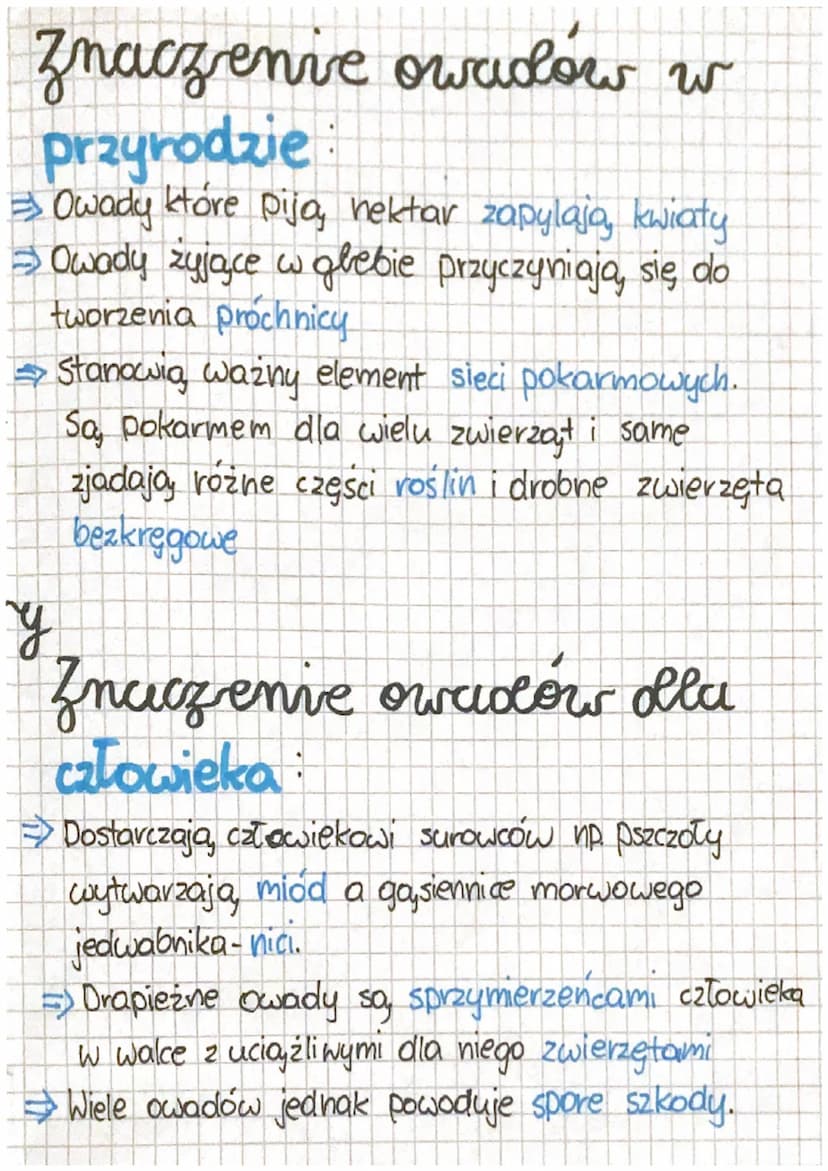 Znaczenie owadów w
przyrodzie:
⇒ Owady które piją nektar zapylają kwiaty
⇒ Owady żyjące w glebie przyczyniają się do
tworzenia próchnicy
⇒ Stanowią ważny element sieci pokarmowych.
Są pokarmem dla wielu zwierząt i same
zjadają różne części roślin i drobne zwierzęta
bezkręgowe
y
Znaczenie owadów dla
człowieka:
⇒ Dostarczają człowiekowi surowców np. pszczoły
wytwarzają miód a gąsiennice morwowego
jedwabnika - nici.
⇒ Drapieżne owady są sprzymierzeńcami człowieka
w walce z uciążliwymi dla niego zwierzętami
⇒ Wiele owadów jednak powoduje spore szkody.